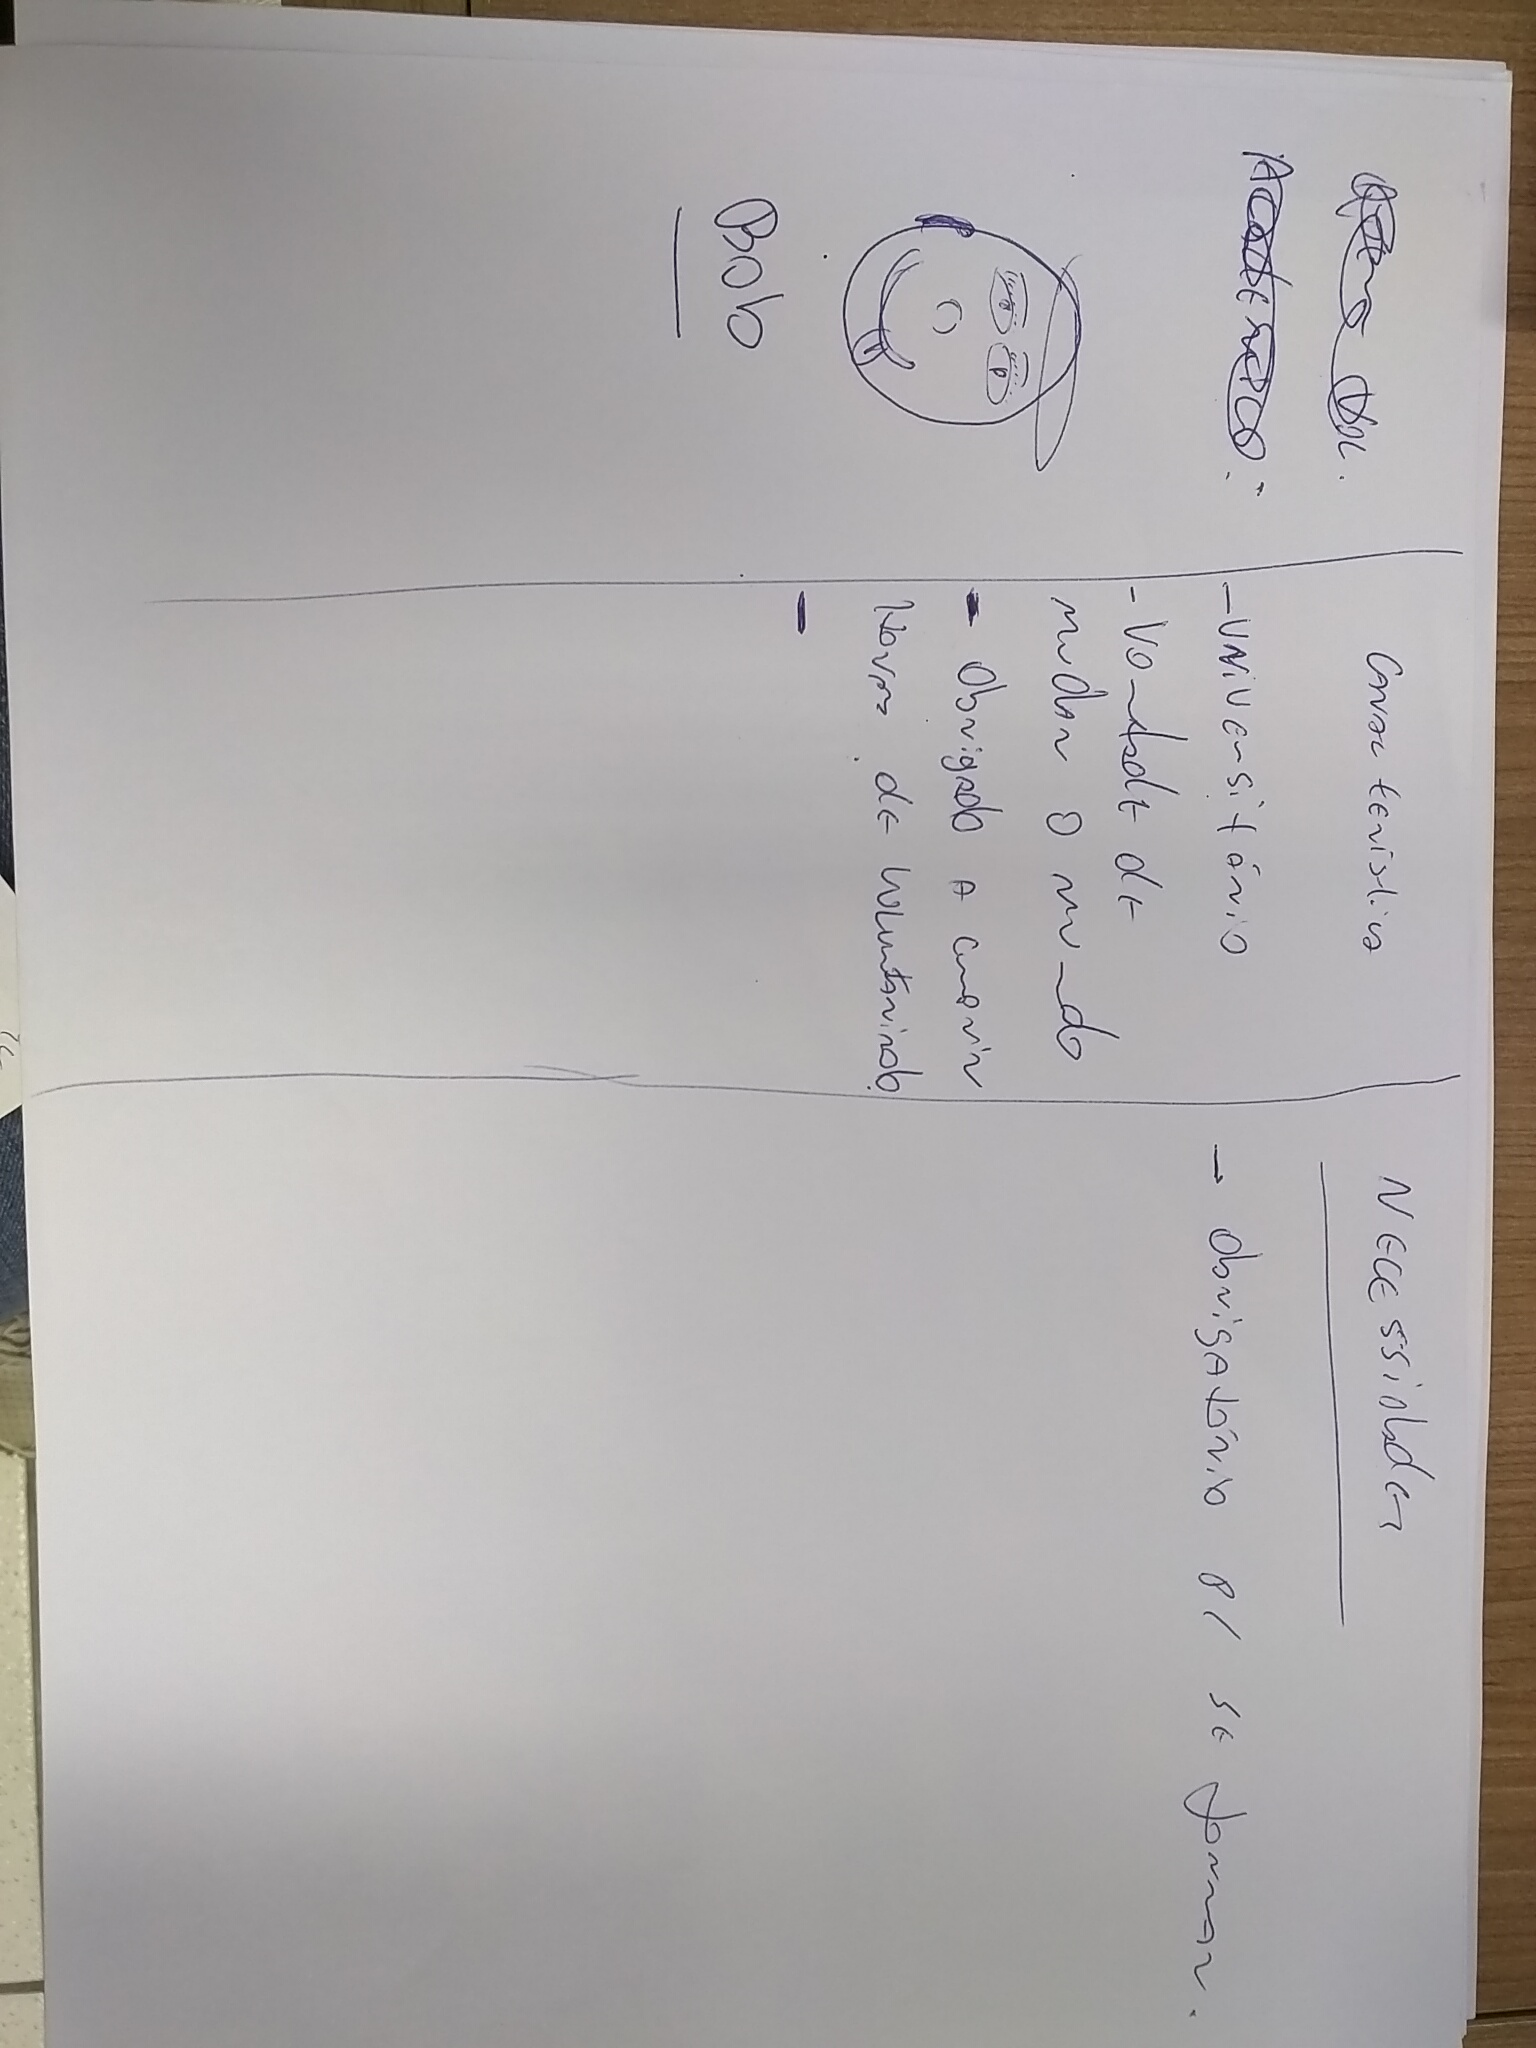 Acadêmico:
Bob
Caracteristica
- UNIVERSITÁRIO
- Vontade de
mudar o mundo
- Obrigado a cumprir
Horas de voluntariado.
-
NECESSIDADES
- Obrigatório p/ se formar.